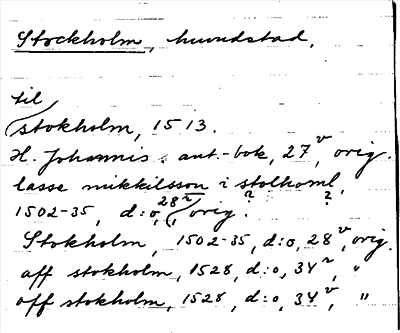 Stockholm, huvudstad.
til
stokholm, 1513.
H. Johannis: ant.-bok, 27v, orig.
lasse mikkilsson i stolhoml,
1502-35, d:o, 28r, orig. ? ?
Stokholm, 1502-35, d:o, 28v, orig.
aff stokholm, 1528, d:o, 34r, "
off stokholm, 1528, d:o, 34v, "